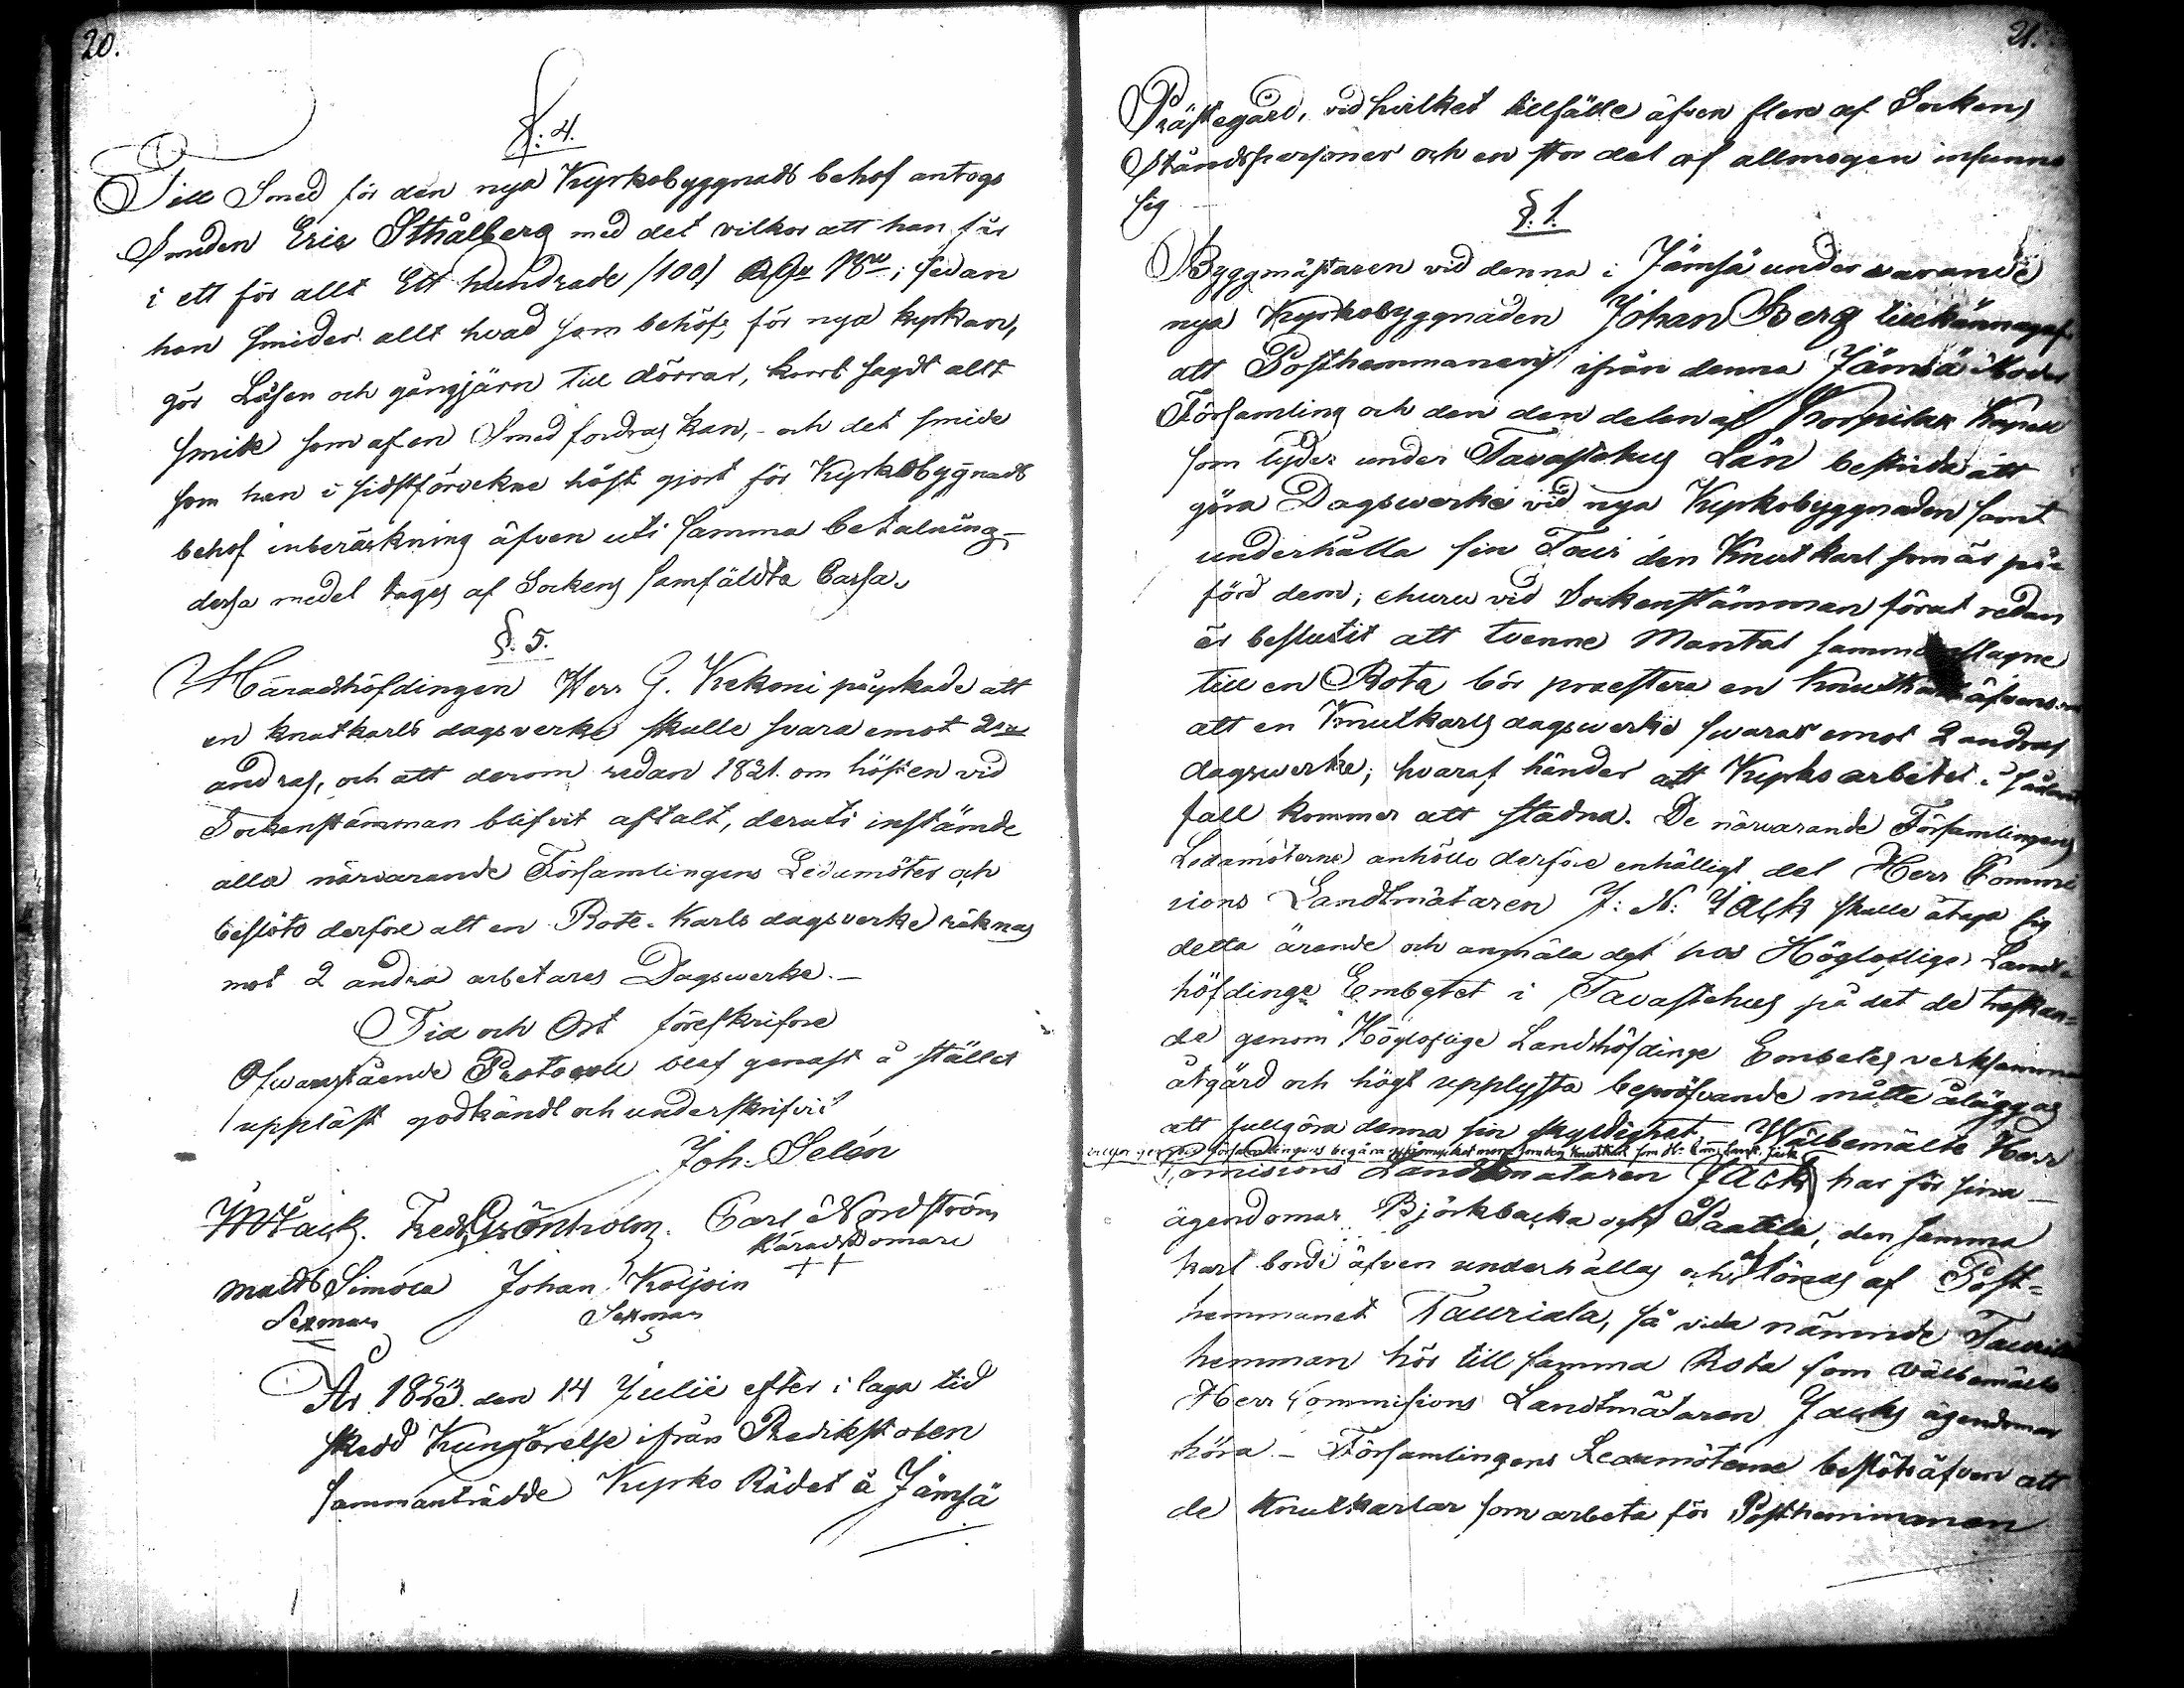 20.
§. 4.
Till Smed för den nya Kyrkobyggnads behof antogs
Smeden Eric Sthålberg med det vilkor att han får
i ett för allt Ett hundrade /100/ sedan
han smider allt hvad som behöfs för nya kyrkan,
gör Låsen och gångjärn till dörrar, kort sagdt allt
smide som af en Smed fordras kan, - och det smide
som han i sidstförvekne höst gjort för Kyrkobygnads
behof inberäkning äfven uti samma betalning -
dessa medel tages af Sockens samfäldta Cassa.
§. 5.
Häradshöfdingen Herr G. Kekoni påyrkade att
en knutkarls dagsverke skulle svara emot 2ne
andras, och att derom redan 1821. om hösten vid
Sockenstämman blifvit aftalt, deruti instämde
alla närvarande Församlingens Ledamöter och
beslöto derföre att en Rote-Karls dagsverke räknas
mot 2 andra arbetares Dagswerke. -
Tid och Ort föreskrifne
Ofwanstående Protocoll blef genast å stället
uppläst godkändt och underskrifvit
Joh. Selén
Jack. Fred. Grönholm. Carl Nordström
Häradsdomare
Matts Simola Johan Koljoin
Sexman Sexman
År 1823 den 14 Julii efter i laga tid
skedd Kungörelse ifrån Predikstolen
sammanträdde Kyrko Rådet å Jämsä
21.
Prästegård, vid hvilket tillfälle äfven flere af Sockens
Ståndspersoner och en stor del af allmogen infunno
sig
§. 1.
Byggmästaren vid denna i Jämsä under varande
nya Kyrkobyggnaden Johan Berg tillkännagaf
att Posthemmanen ifrån denna Jämsä Moder
Församling och den den delen af Korpilax Kapell
som lyder under Tavastehus Län bestrida att
göra Dagswerke vid nya Kyrkobyggnaden samt
underhålla sin Tour den Knutkarl som är på-
förd dem; ehuru vid Sockenstämman förut redan
är beslutit att tvenne Mantal sammanslagne
till en Rota bör praestera en Knutkarl äfvensom
att en Knutkarls dagswerke swarar emot 2 andras
dagswerke; hvaraf händer att Kyrko arbetet i sådant
fall kommer att stadna. De närvarande Församlingens
Ledamöterne anhöllo derföre enhälligt det Herr Commis
sions Landtmätaren J: N: Jack skulle åtaga sig
detta ärende och anmäla det hos Högloflige Lands
höfdinge Embetet i Tavastehus på det de tresskan-
de genom Höglofliga Landshöfdinge Embetes verksamma
åtgärd och högt upplysta bepröfvande måtte åläggas
att fullgöra denna sin skyldighet - Wälbemälte Herr
Församlingens begäran
Comissions Landtmätaren Jack har för sina
ägendomar Björkbacka och Paatila, den samma
karl borde äfven underhållas och aflönas af Post-
hemmanet Tauriala, så vida nämnde Tauriala
hemman hör till samma Rota som välbemälte
Herr Commissions Landtmätaren Jacks ägendomar
höra - Församlingens Ledamöterne beslöto äfven att
de Knutkarlar som arbeta för Posthemmanen